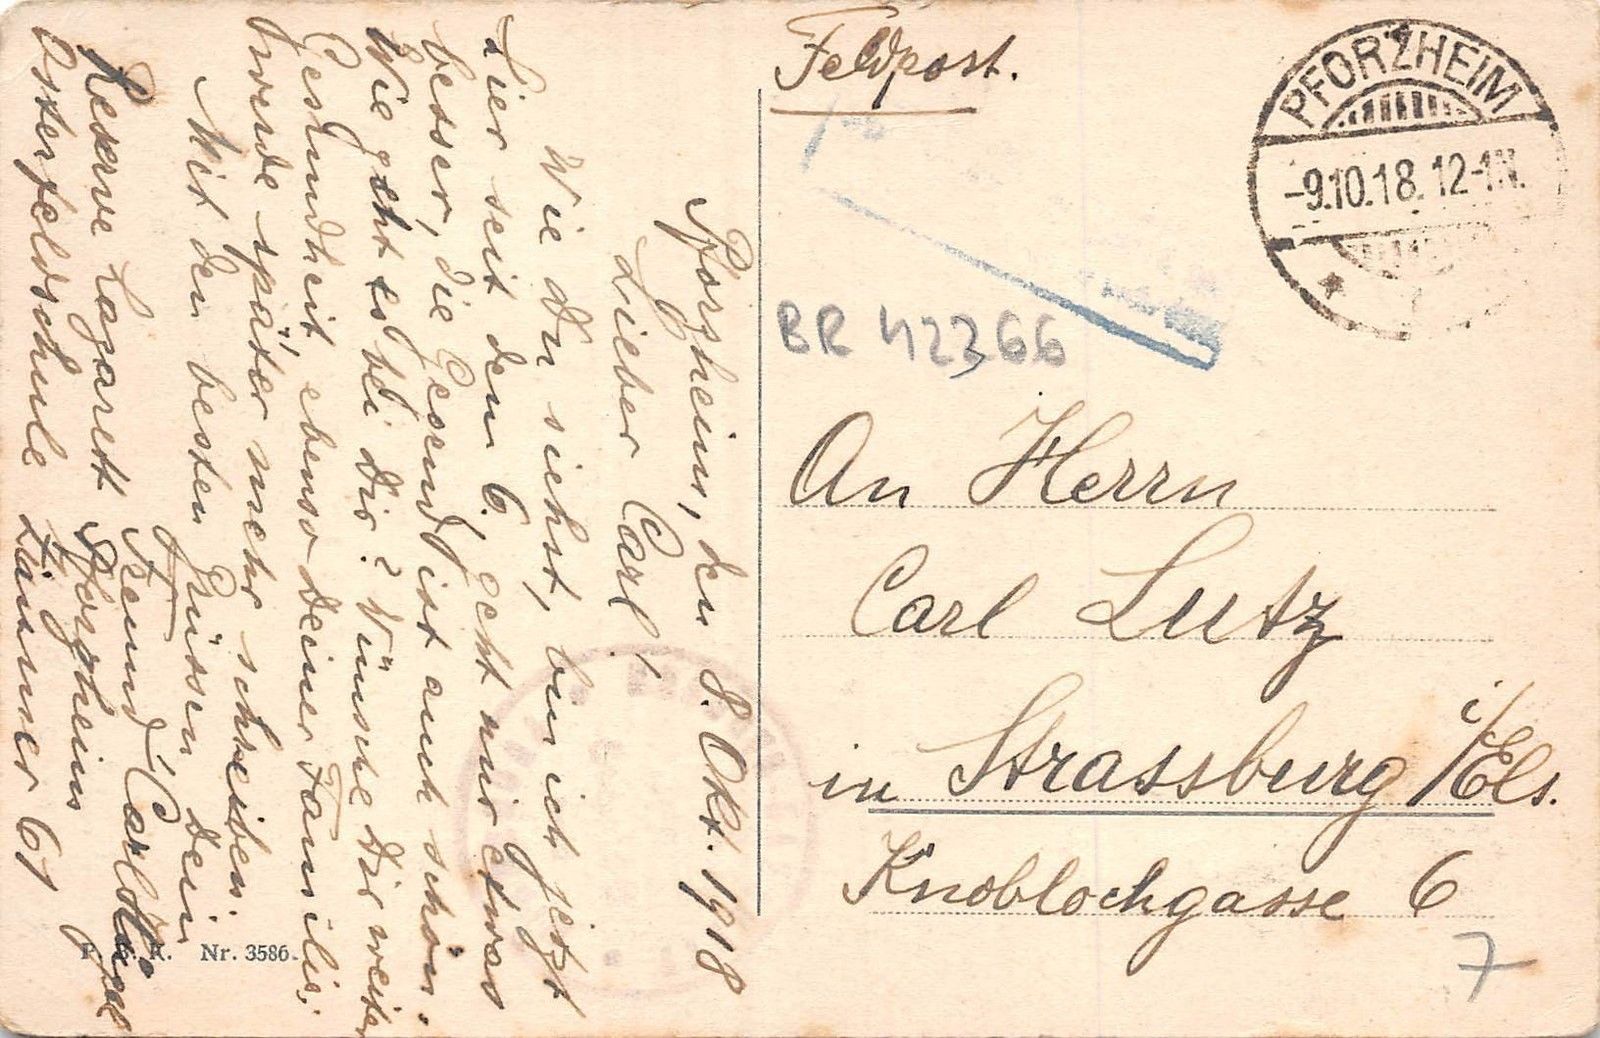 Feldpost.
PFORZHEIM
-9.10.18. 12-1N.
BR 42366
An Herrn
Carl Lutz
in Strassburg i/Els.
Knoblochgasse 6
7
Pforzheim, den 8. Okt. 1918
Lieber Carl!
Wie du siehst, bin ich jetzt
hier seit dem 6., geht mir etwas
besser, die Gegend ist auch schön.
Wie geht es bei dir? Wünsche dir weiter
Gesundheit, ebenso deiner Familie,
werde später mehr schreiben.
Mit den besten Grüssen dein
Freund Carl
Reserve Lazarett Pforzheim
Osterfeldschule Zimmer 61
Nr. 3586.